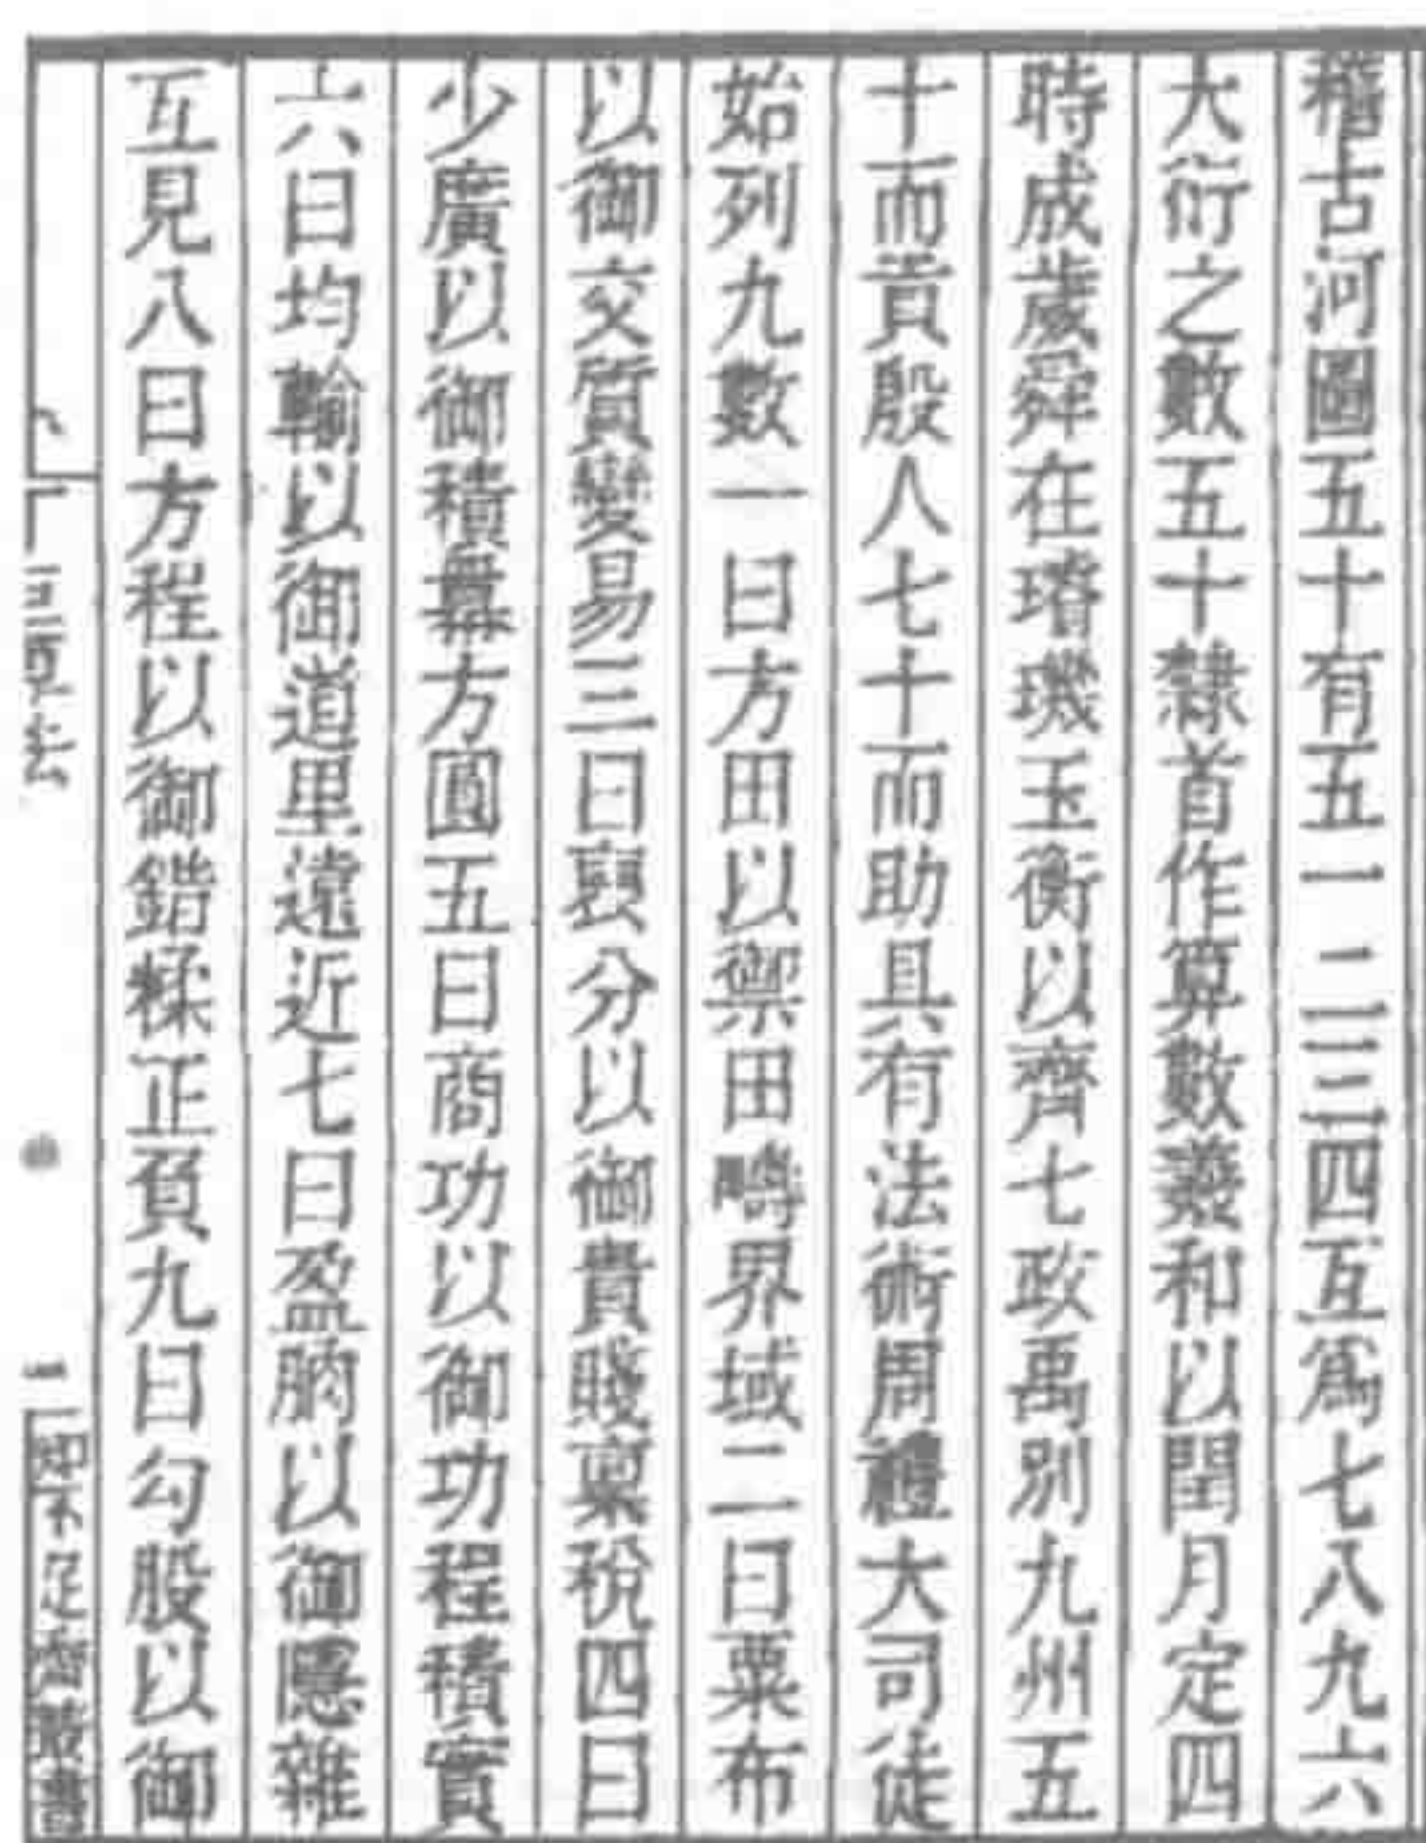 稽古河圖五十有五一二三四互爲七八九六
大衍之數五十隸首作算數羲和以閏月定四
時成歲舜在璿璣玉衡以齊七政禹別九州五
十而貢殷人七十而助具有法術周禮大司徒
始列九數一曰方田以禦田疇界域二曰粟布
以御交質變易三曰衰分以御貴賤稟稅四曰
少廣以御積冪方圓五曰商功以御功程積實
六曰均輸以御道里遠近七曰盈朒以御隱雜
互見八曰方程以御錯糅正負九曰勾股以御
一 知不足齋叢書